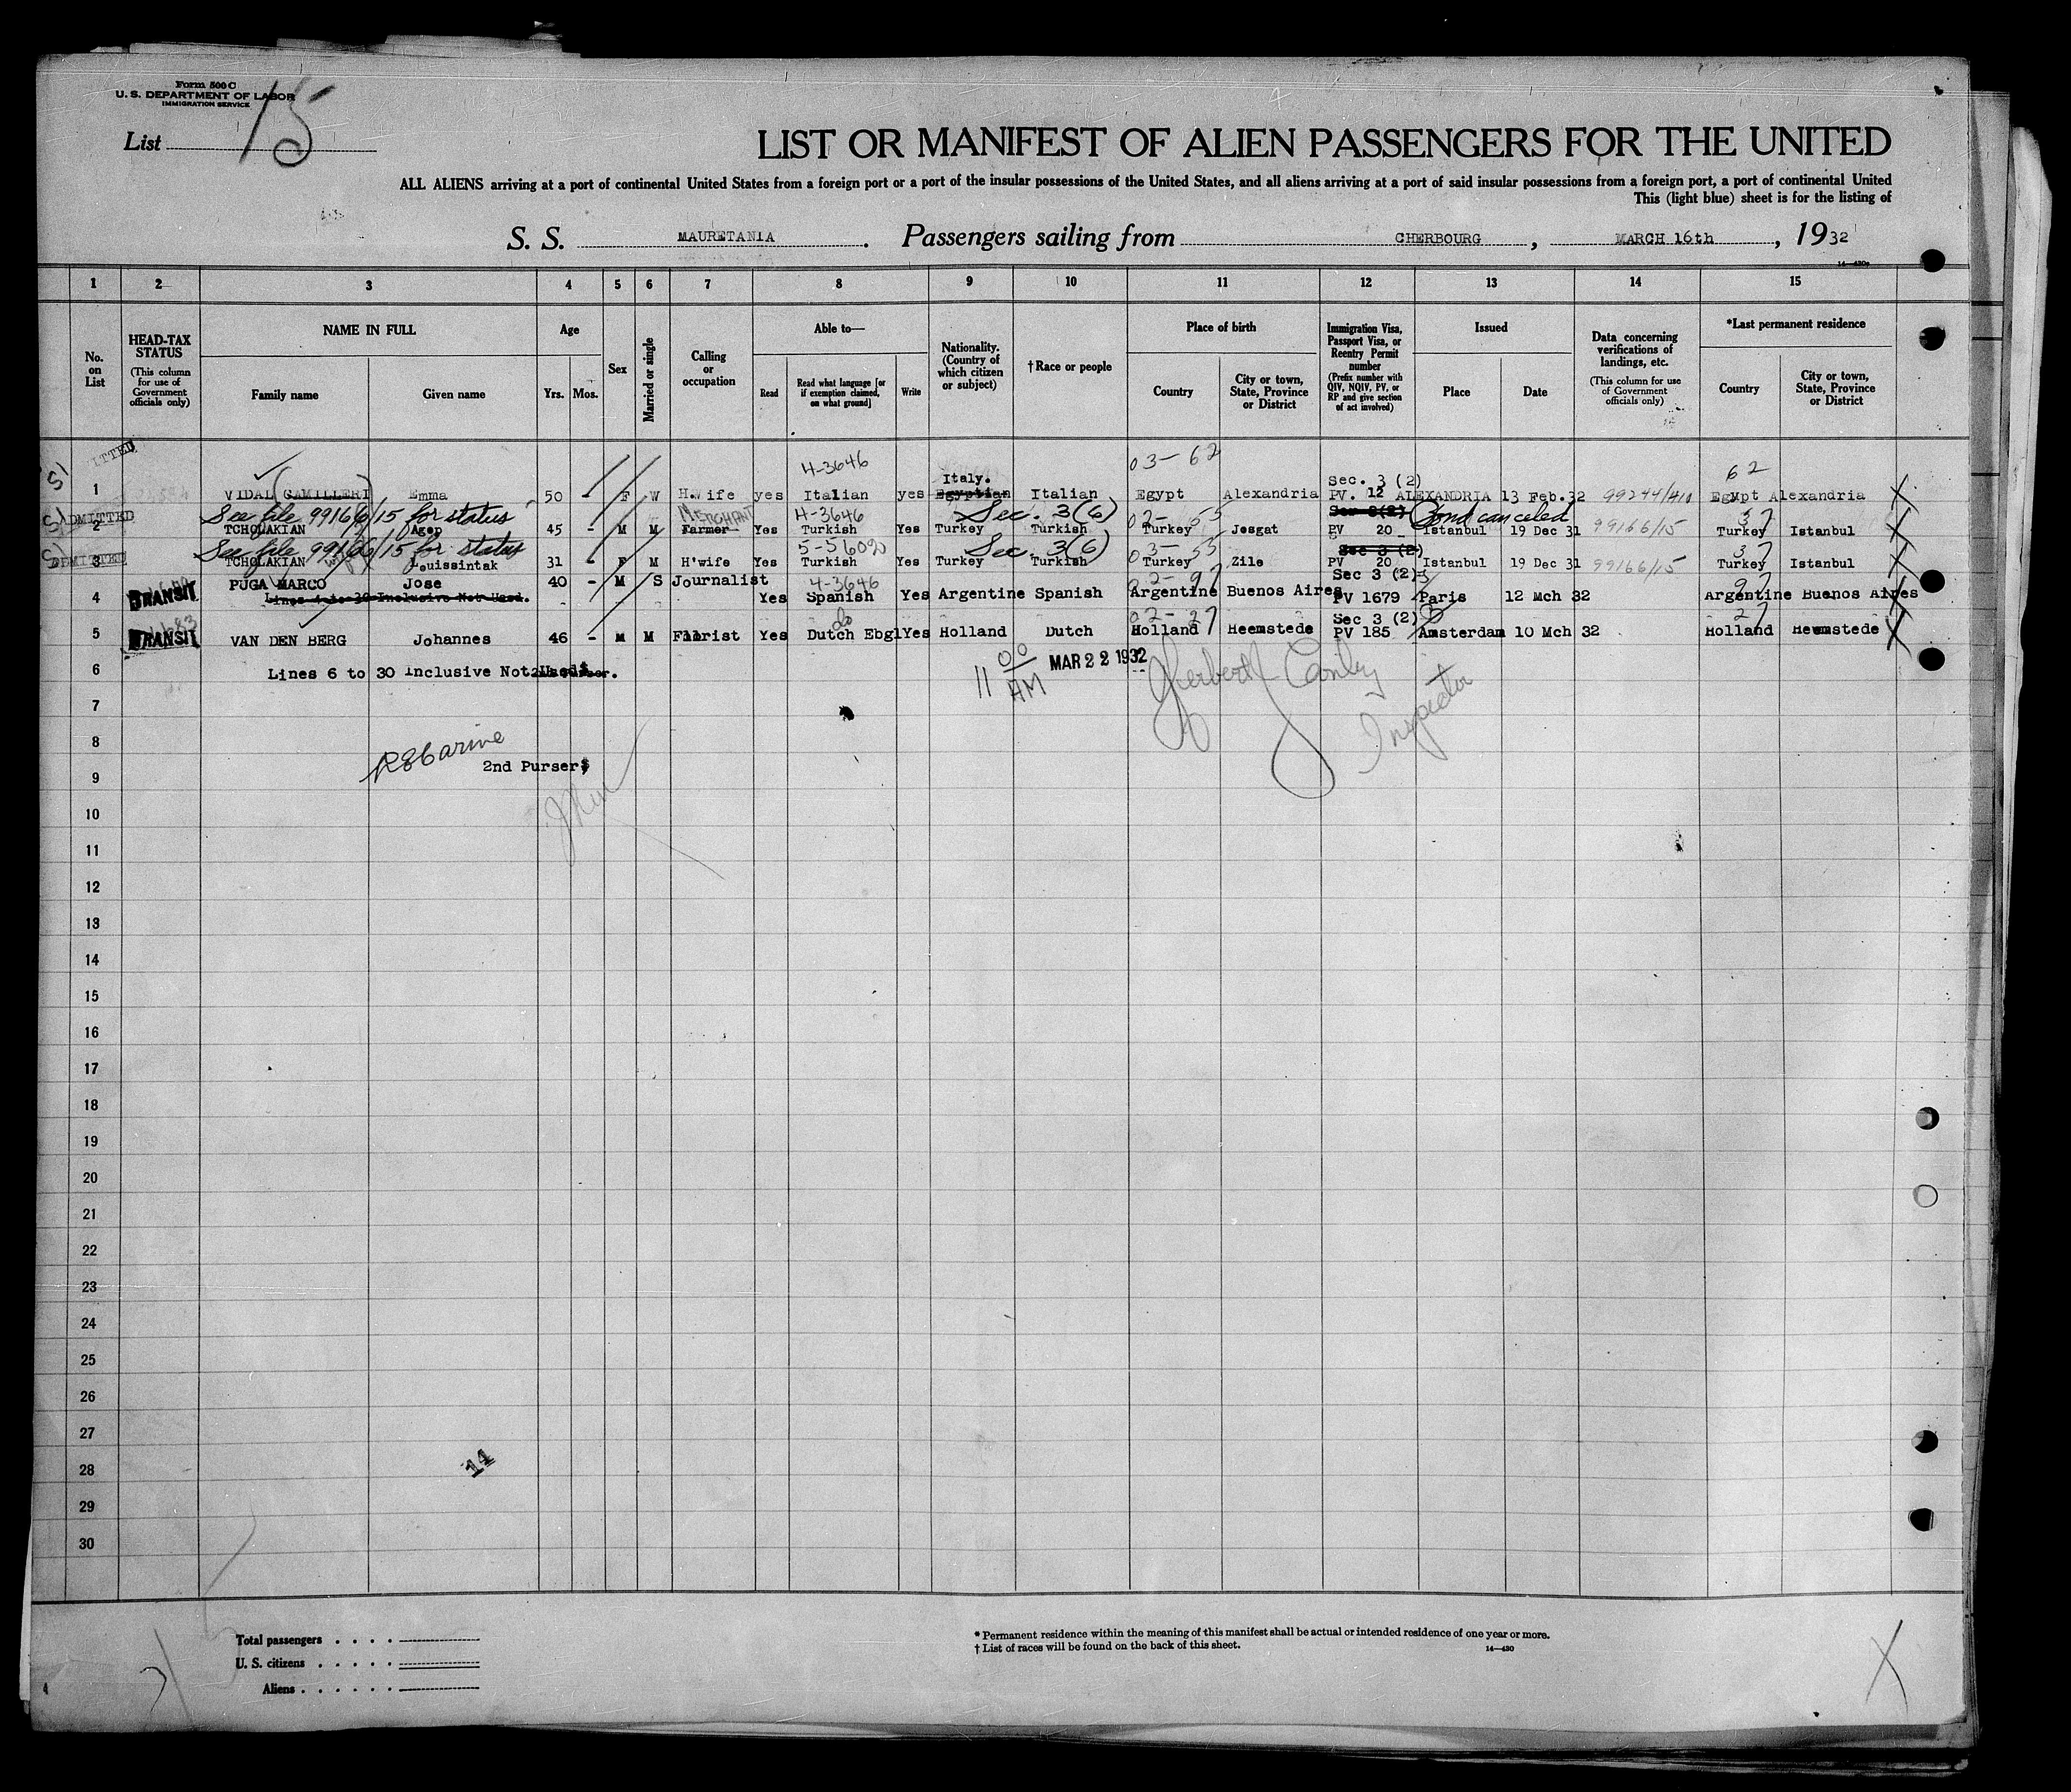 Form 500 C
U. S. DEPARTMENT OF LABOR
IMMIGRATION SERVICE
List 15
LIST OR MANIFEST OF ALIEN PASSENGERS FOR THE UNITED
ALL ALIENS arriving at a port of continental United States from a foreign port or a port of the insular possessions of the United States, and all aliens arriving at a port of said insular possessions from a foreign port, a port of continental United
This (light blue) sheet is for the listing of
S. S. MAURETANIA. Passengers sailing from CHERBOURG, MARCH 16th, 1932
14—430a
1 2 3 4 5 6 7 8 9 10 11 12 13 14 15
No. on List
HEAD-TAX STATUS (This column for use of Government officials only)
NAME IN FULL
Family name
Given name
Age
Yrs. Mos.
Sex
Married or single
Calling or occupation
Able to—
Read
Read what language [or if exemption claimed, on what ground]
Write
Nationality. (Country of which citizen or subject)
†Race or people
Place of birth
Country
City or town, State, Province or District
Immigration Visa, Passport Visa, or Reentry Permit number (Prefix number with QIV, NQIV, PV, or RP and give section of act involved)
Issued
Place
Date
Data concerning verifications of landings, etc. (This column for use of Government officials only)
*Last permanent residence
Country
City or town, State, Province or District
4-3646 03-62 62
Italy. Sec. 3 (2)
1 VIDAL (CAMILLERI) Emma 50 - F W H.wife yes Italian yes Egyptian Italian Egypt Alexandria PV. 12 ALEXANDRIA 13 Feb.32 99244/410 Egypt Alexandria
ADMITTED See file 99166/15 for status MERCHANT 4-3646 Sec. 3(6) 02-55 Sec 3(2) Bond canceled 37
2 TCHOLAKIAN Agop 45 - M M Farmer Yes Turkish Yes Turkey Turkish Turkey Josgat PV 20 Istanbul 19 Dec 31 99166/15 Turkey Istanbul
See file 99166/15 for status 5-56090 Sec. 3(6) 03-55 Sec 3 (2) 37
3 ADMITTED TCHOLAKIAN Louissintak 31 - F M H'wife Yes Turkish Yes Turkey Turkish Turkey Zile PV 20 Istanbul 19 Dec 31 99166/15 Turkey Istanbul
PUGA MARCO Jose 40 - M S Journalist 4-3646 02-97 Sec 3 (2) 97
4 TRANSIT Lines 4 to 30 Inclusive Not Used. Yes Spanish Yes Argentine Spanish Argentine Buenos Aires PV 1679 Paris 12 Mch 32 Argentine Buenos Aires
do 02-27 Sec 3 (2) 27
5 TRANSIT VAN DEN BERG Johannes 46 - M M Florist Yes Dutch Ebgl Yes Holland Dutch Holland Heemstede PV 185 Amsterdam 10 Mch 32 Holland Heemstede
6 Lines 6 to 30 Inclusive Not Used. 11 00 AM MAR 22 1932 Herbert Conley
Inspector
7
8
2nd Purser
9
10
11
12
13
14
15
16
17
18
19
20
21
22
23
24
25
26
27
28 14
29
30
Total passengers
U. S. citizens
Aliens
* Permanent residence within the meaning of this manifest shall be actual or intended residence of one year or more.
† List of races will be found on the back of this sheet. 14—430